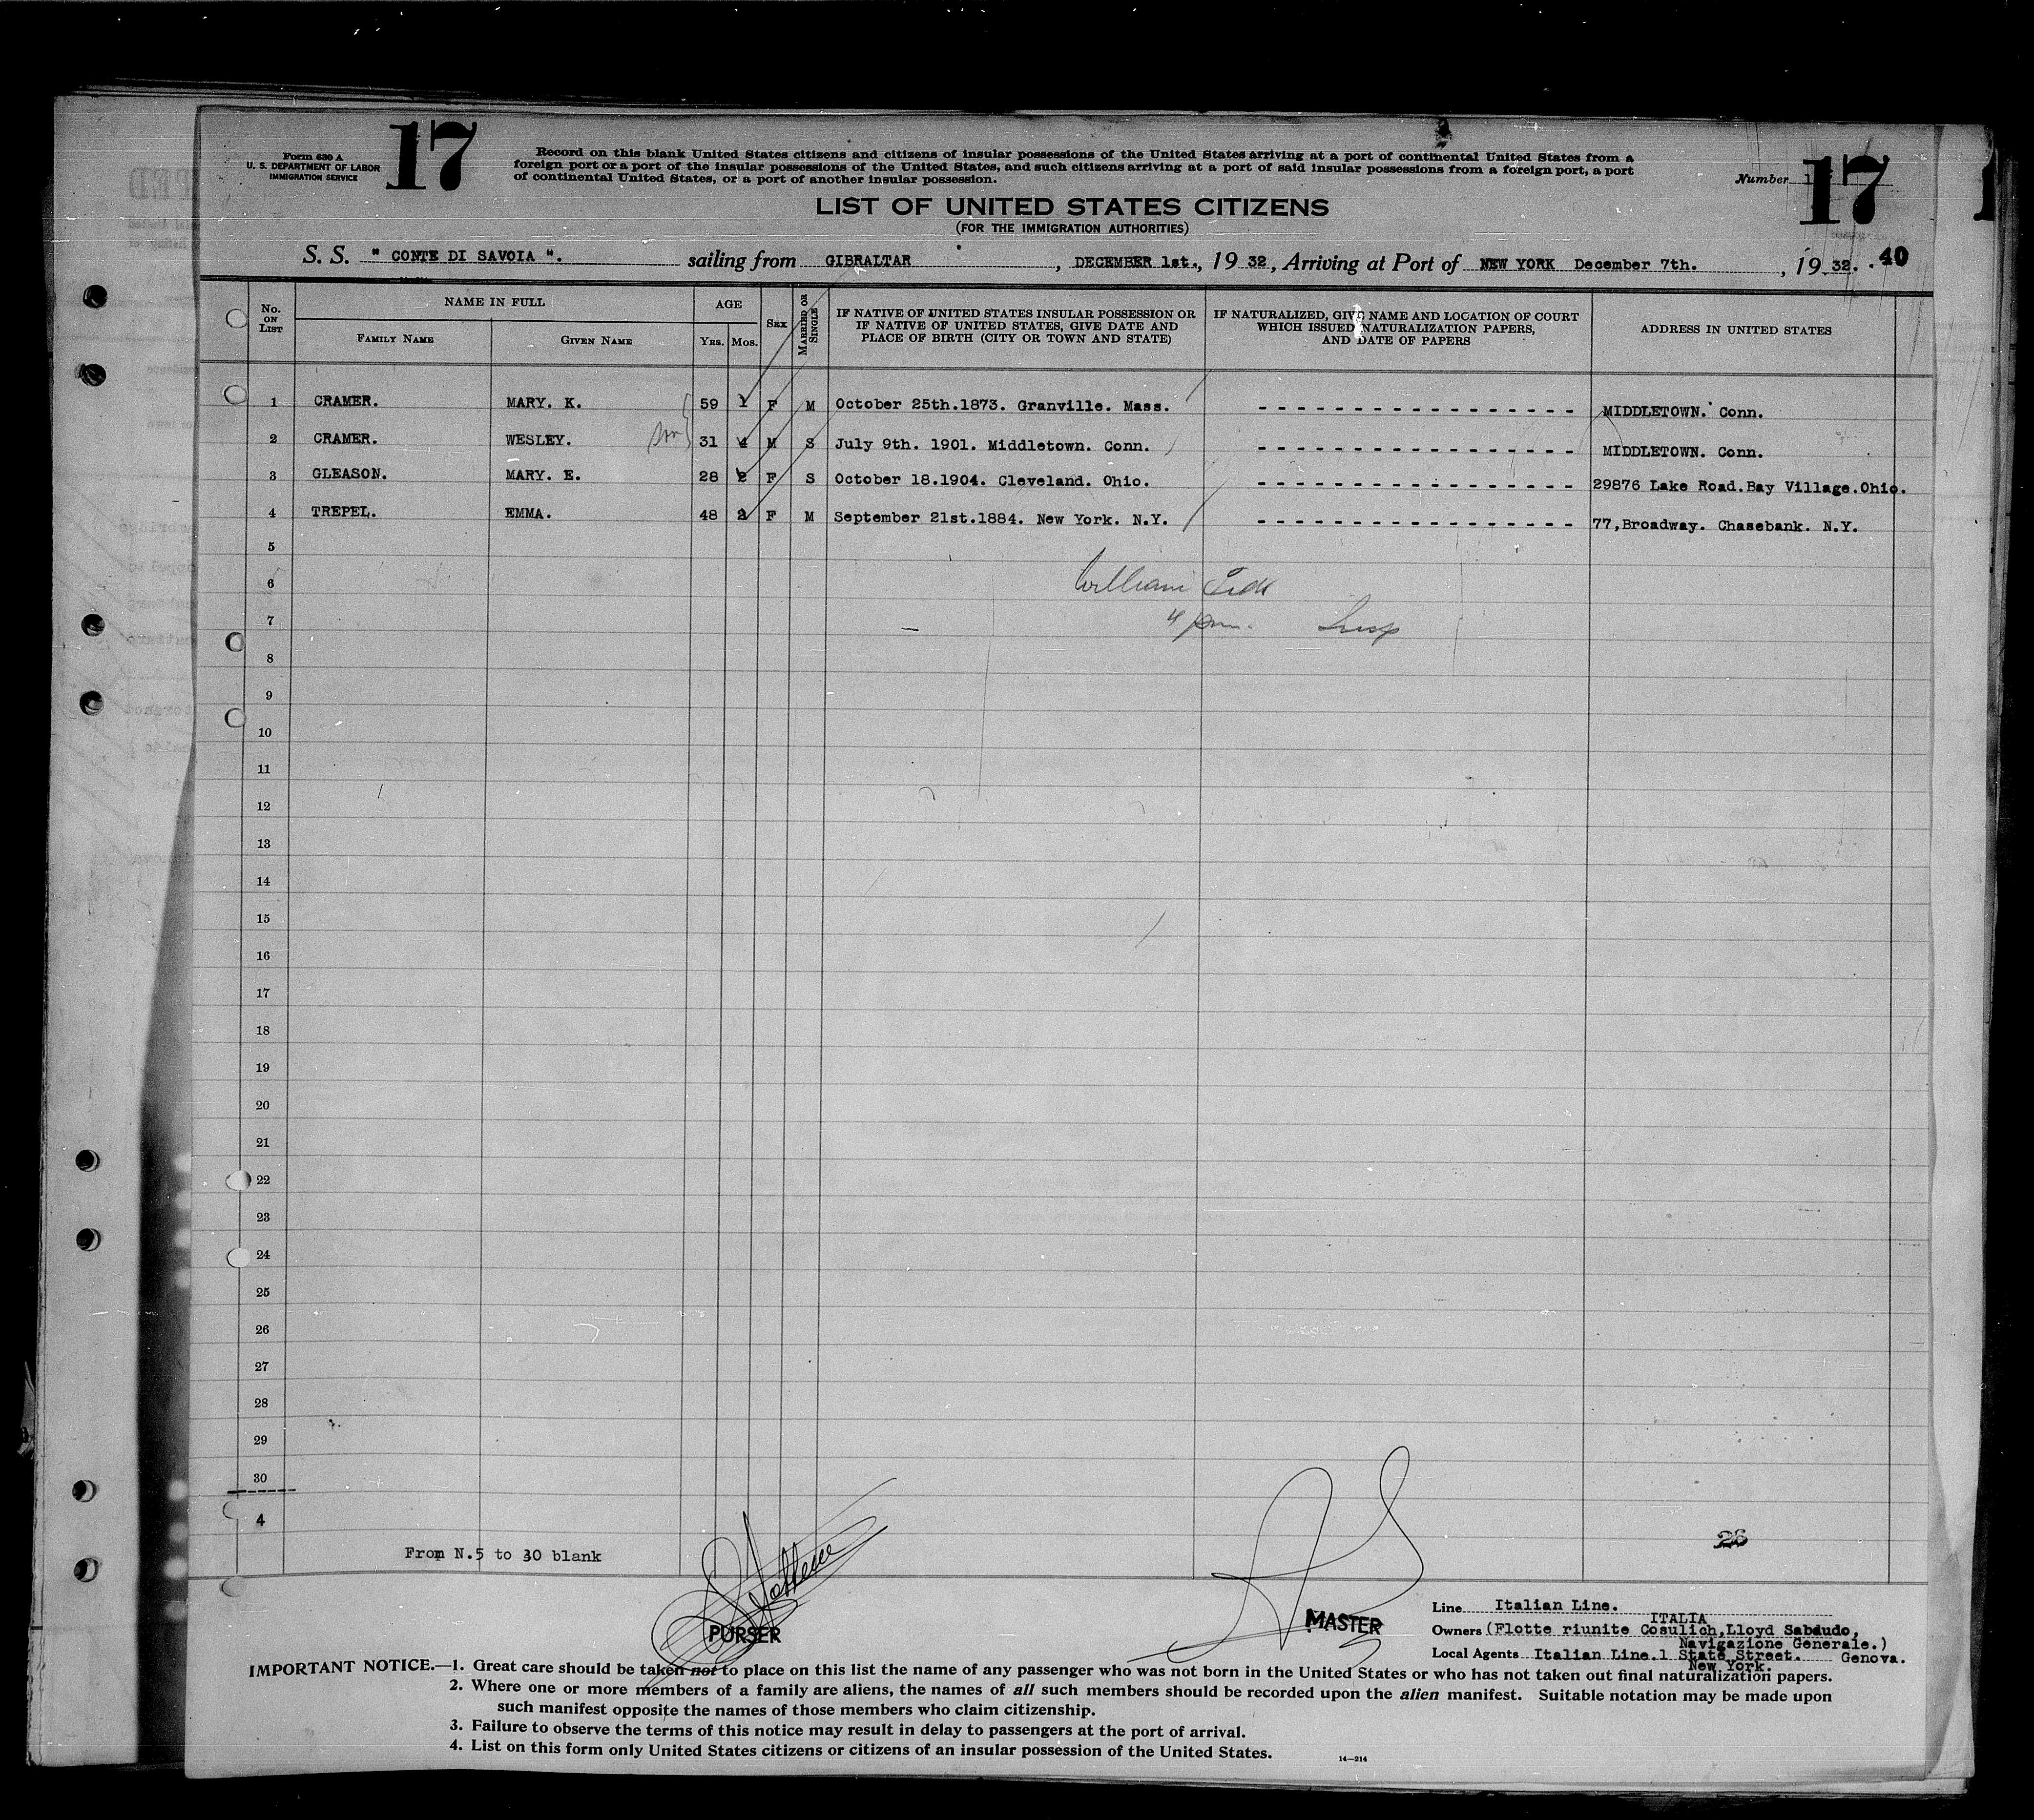 Form 630 A
U. S. DEPARTMENT OF LABOR
IMMIGRATION SERVICE
17
Record on this blank United States citizens and citizens of insular possessions of the United States arriving at a port of continental United States from a
foreign port or a port of the insular possessions of the United States, and such citizens arriving at a port of said insular possessions from a foreign port, a port
of continental United States, or a port of another insular possession.
Number 17
LIST OF UNITED STATES CITIZENS
(FOR THE IMMIGRATION AUTHORITIES)
S. S. " CONTE DI SAVOIA ". sailing from GIBRALTAR, DECEMBER 1st., 1932, Arriving at Port of NEW YORK December 7th., 1932. . 40
No. ON LIST
NAME IN FULL
FAMILY NAME
GIVEN NAME
AGE
YRS. MOS.
SEX
MARRIED OR SINGLE
IF NATIVE OF UNITED STATES INSULAR POSSESSION OR
IF NATIVE OF UNITED STATES, GIVE DATE AND
PLACE OF BIRTH (CITY OR TOWN AND STATE)
IF NATURALIZED, GIVE NAME AND LOCATION OF COURT
WHICH ISSUED NATURALIZATION PAPERS,
AND DATE OF PAPERS
ADDRESS IN UNITED STATES
1 CRAMER. MARY. K. 59 1 F M October 25th.1873. Granville. Mass. - - - - - - - - - - - - - - - - - MIDDLETOWN. Conn.
2 CRAMER. WESLEY. son 31 4 M S July 9th. 1901. Middletown. Conn. - - - - - - - - - - - - - - - - - MIDDLETOWN. Conn.
3 GLEASON. MARY. E. 28 2 F S October 18.1904. Cleveland. Ohio. - - - - - - - - - - - - - - - - - 29876 Lake Road.Bay Village.Ohio.
4 TREPEL. EMMA. 48 2 F M September 21st.1884. New York. N.Y. - - - - - - - - - - - - - - - - - 77,Broadway. Chasebank. N.Y.
5
6 William
7 Insp
8
9
10
11
12
13
14
15
16
17
18
19
20
21
22
23
24
25
26
27
28
29
30
4
26
From N.5 to 30 blank
PURSER
MASTER
Line Italian Line.
ITALIA
Owners (Flotte riunite Cosulich,Lloyd Sabaudo,
Navigazione Generale.)
Local Agents Italian Line.1 State Street. Genova.
New York.
IMPORTANT NOTICE.—1. Great care should be taken not to place on this list the name of any passenger who was not born in the United States or who has not taken out final naturalization papers.
2. Where one or more members of a family are aliens, the names of all such members should be recorded upon the alien manifest. Suitable notation may be made upon
such manifest opposite the names of those members who claim citizenship.
3. Failure to observe the terms of this notice may result in delay to passengers at the port of arrival.
4. List on this form only United States citizens or citizens of an insular possession of the United States.
14—214